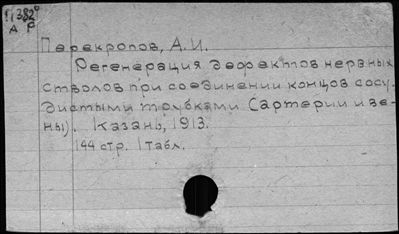 11382°
А Р
Перекропов, А.И.
Регенерация дефектов нервных
стволов при соединении концов сосу-
дистыми трубками (артерии и ве-
ны). Казань, 1913.
144 стр. 1 табл.